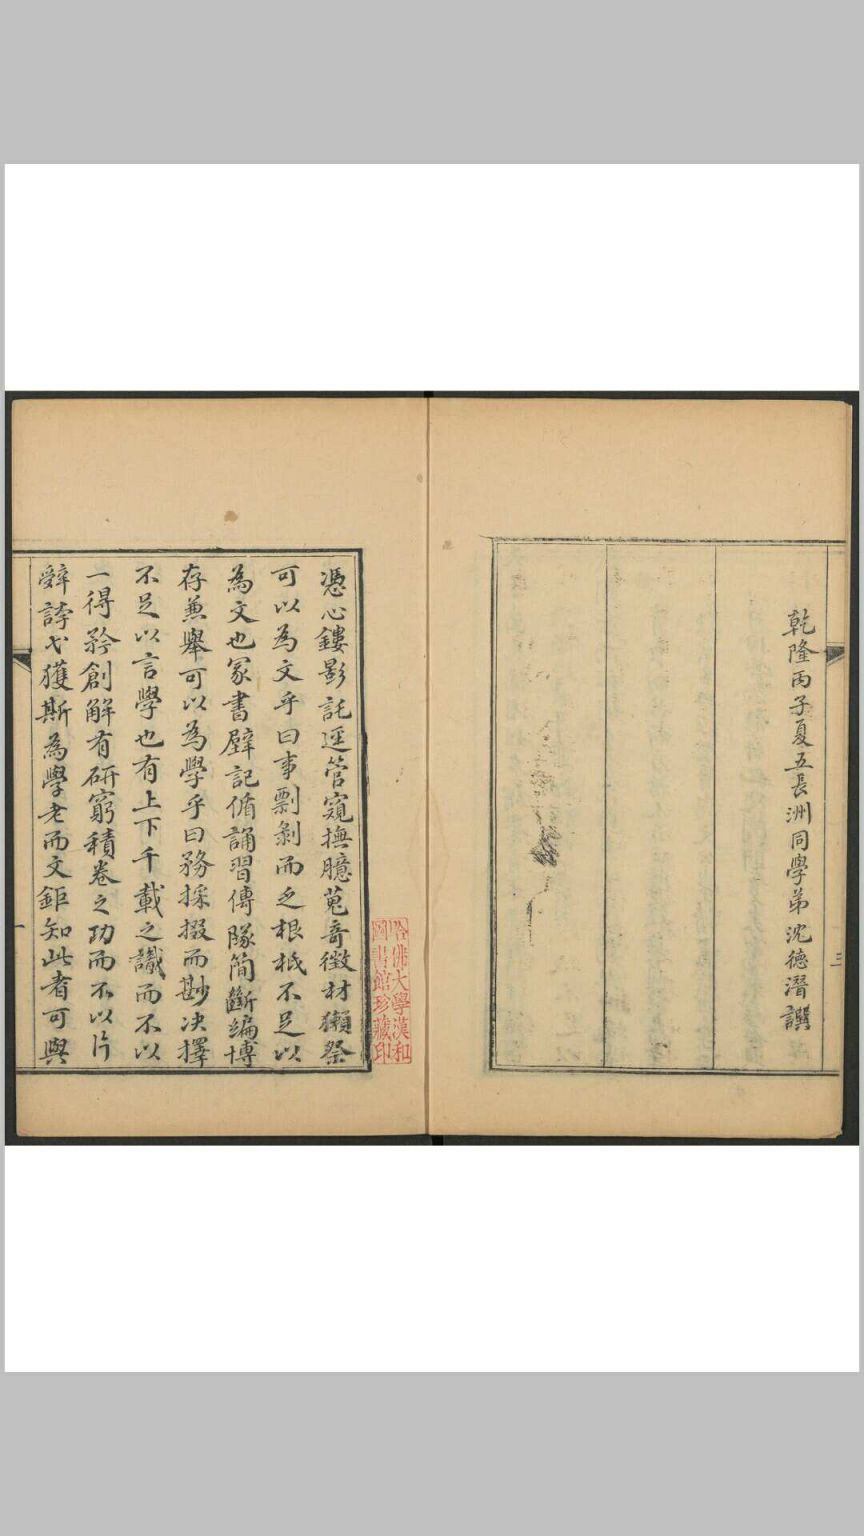 乾隆丙子夏五長洲同學弟沈德潛譔
三
哈佛大學漢和
圖書館珍藏印
憑心鏤影託逕管窺撫臆蒐奇徵材獺祭
可以為文乎曰事剽剝而乏根柢不足以
為文也冢書壁記循誦習傳隊簡斷編博
存兼舉可以為學乎曰務採掇而尠决擇
不足以言學也有上下千載之識而不以
一得矜創解有研窮積卷之功而不以片
辭誇弋獲斯為學老而文鉅知此者可與
一